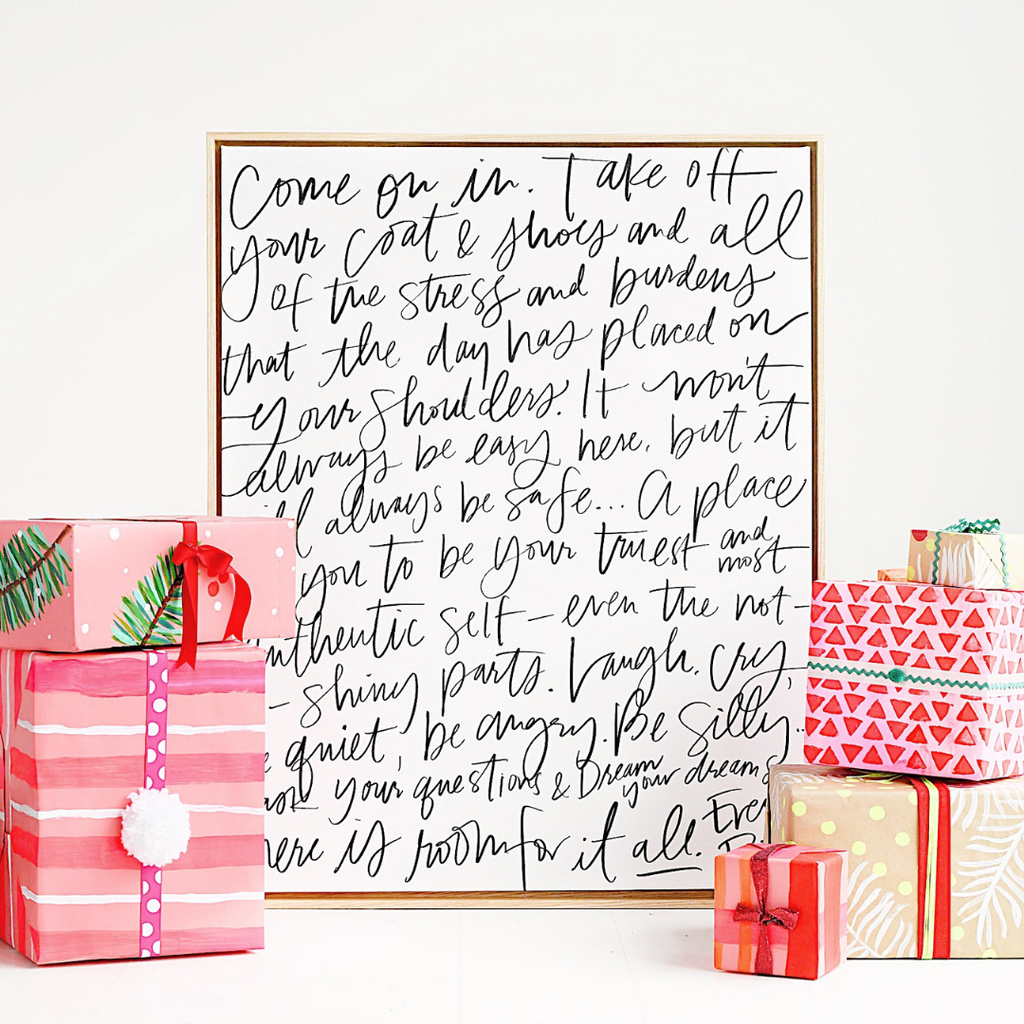 Come on in. Take off
your coat & shoes and all
of the stress and burdens
that the day has placed on
your shoulders. It won't
always be easy here, but it
always be safe... A place
you to be your truest and most
self - even the not-
- shiny parts. Laugh, cry,
quiet, be angry. Be silly.
your questions & Dream your dreams
is room for it all.